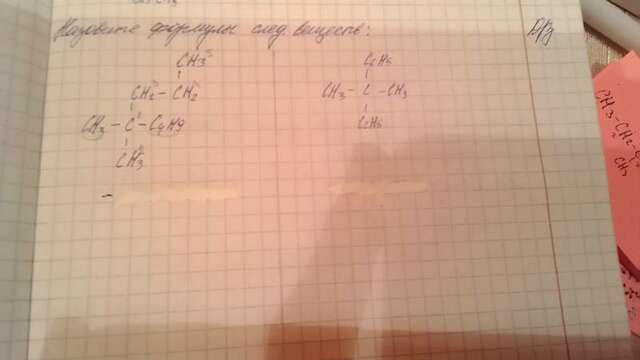 Назовите формулы след. веществ:
Д/з
CH3
CH2 – CH2
CH3 – C – C4H9
CH3
C2H5
CH3 – C – CH3
C2H5
CH3 – CH2
CH3